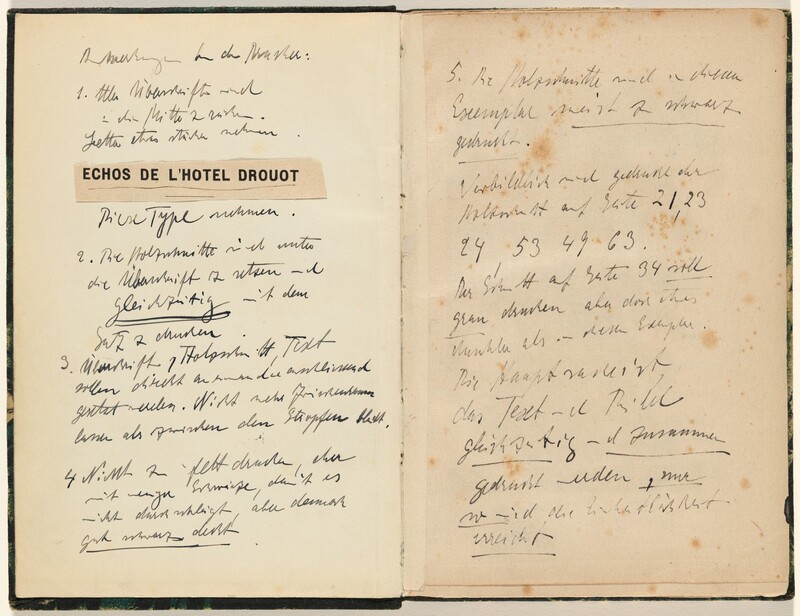 Anmerkungen für den Drucker:
1. Alle Überschriften sind
in die Mitte zu rücken.
Letter etwas stärker nehmen.
ECHOS DE L'HOTEL DROUOT
Diese Type nehmen.
2. Die Holzschnitte sind unter
die Überschrift zu setzen und
gleichzeitig mit dem
Satz zu drucken.
3. Überschrift, Holzschnitt, Text
sollen direkt aneinander anschliessend
gesetzt werden. Nicht mehr Zwischenraum
lassen als zwischen den Strophen bleibt.
4 Nicht zu fett drucken, aber
mit Schwärze, damit es
nicht durchschlägt, aber dennoch
gut schwarz deckt
5. Die Holzschnitte sind in diesem
Exemplar meist zu schwarz
gedruckt.
Vorbildlich sind gedruckt der
Holzschnitt auf Seite 21, 23
24, 53 49 63.
Der Schnitt auf Seite 34 soll
grau drucken aber doch etwas
dunkler als in diesem Exemplar.
Die Hauptsache ist
das Text und Bild
gleichzeitig und zusammen
gedruckt werden, nur
so wird die Einheitlichkeit
erreicht